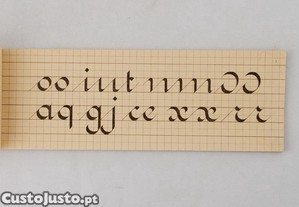 oo iut nmƆƆ
aq gj cc xx rr
CustoJusto.pt